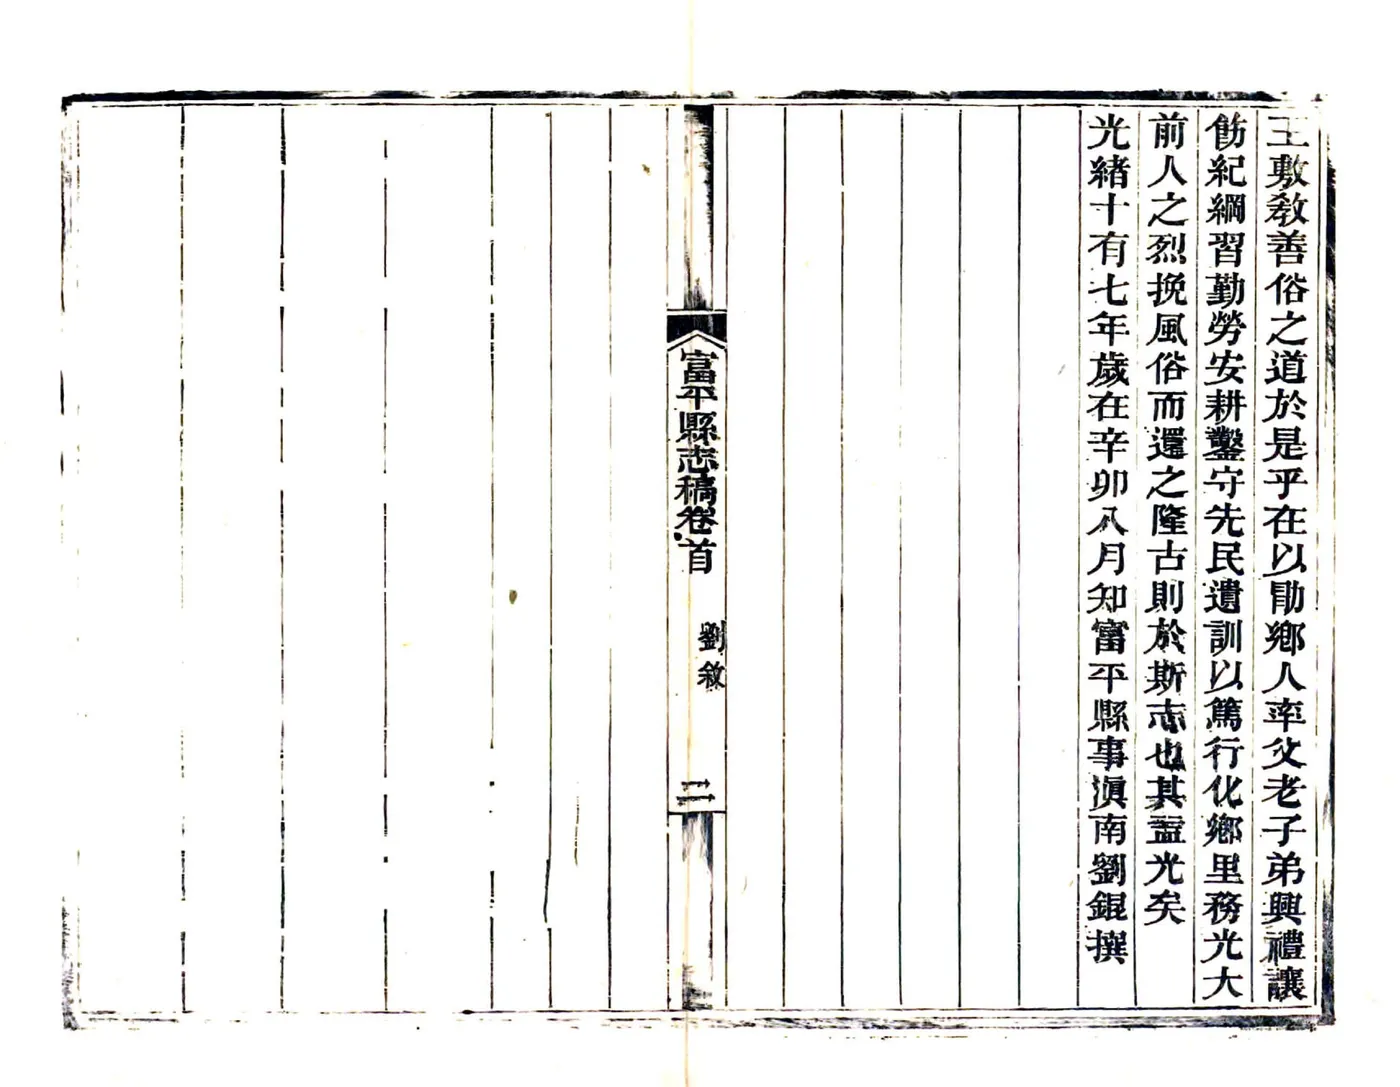 王敷敎善俗之道於是乎在以勖鄉人率父老子弟興禮讓
飭紀綱習勤勞安耕鑿守先民遺訓以篤行化鄉里務光大
前人之烈挽風俗而還之隆古則於斯志也其盖光矣
光緖十有七年歲在辛卯八月知富平縣事滇南劉錕撰
富平縣志稿卷首
劉敘
二